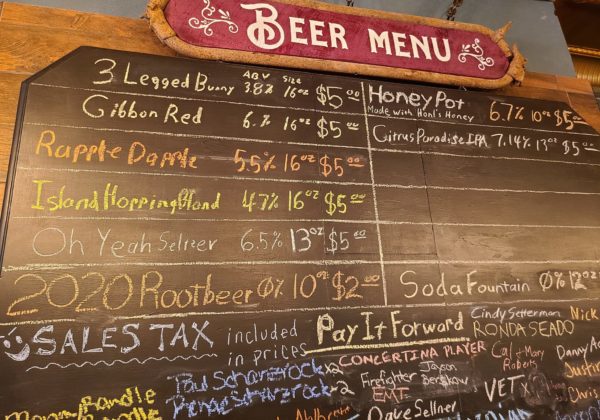 BEER MENU
ABV SIZE
3 Legged Bunny 3.8% 16oz $5.00
Gibbon Red 6.% 16oz $5.00
Rapple Dapple 5.5% 16oz $5.00
Island Hopping Bland 4.7% 16oz $5.00
Oh Yeah Seltzer 6.5% 13oz $5.00
2020 Rootbeer 0% 10oz $2.00
Honey Pot 6.7% 10oz $5.00
Made with Honl's Honey
Citrus Paradise IPA 7.14% 13oz $5.00
Soda Fountain 0% 12oz
SALES TAX included in prices
Pay It Forward
Cindy Setterman
Nick
RONDA SEADO
CONCERTINA PLAYER
Cal + Mary
Roberts
Danny
Firefighter
EMT
Jason
VET
Dave Sellner
Paul Schanzrock x2
x2
Randle